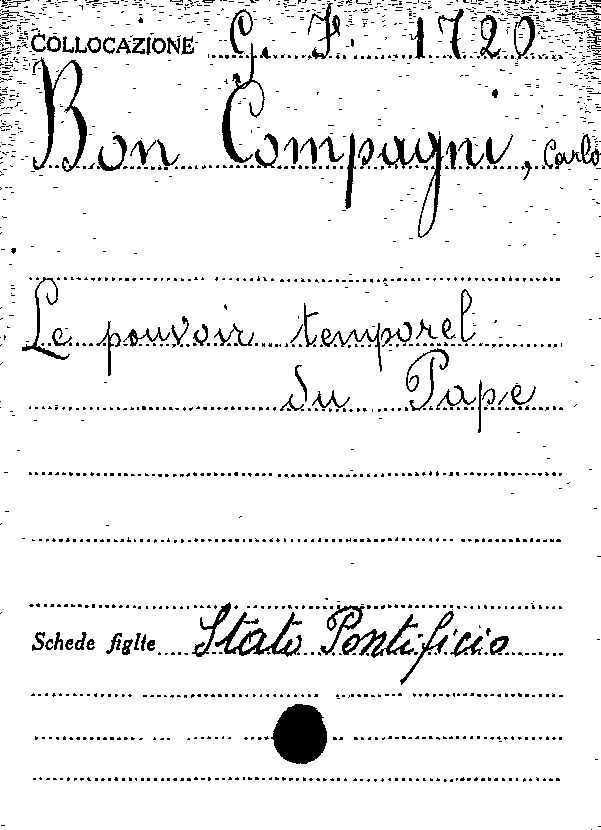 COLLOCAZIONE G. F. 1720
Bon Compagni, Carlo
Le pouvoir temporel
du Pape
Schede figlie Stato Pontificio